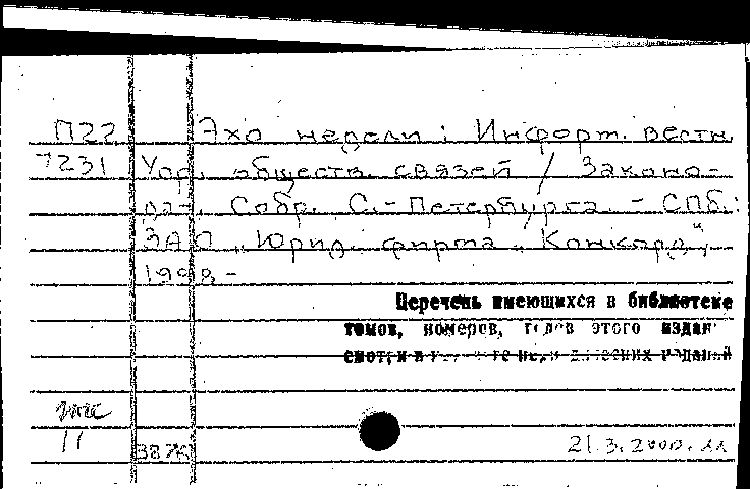 П22 Эхо недели : Информ. вестн.
7231 Упр. обществ. связей / Законо-
дат. Собр. С.-Петербурга. - СПб.:
ЗАО "Юрид. фирма "Конкорд",
1998 -
Перечень имеющихся в библиотеке
томов, номеров, годов этого издан
смотри в
изданий
11
387К
21.3.2000.